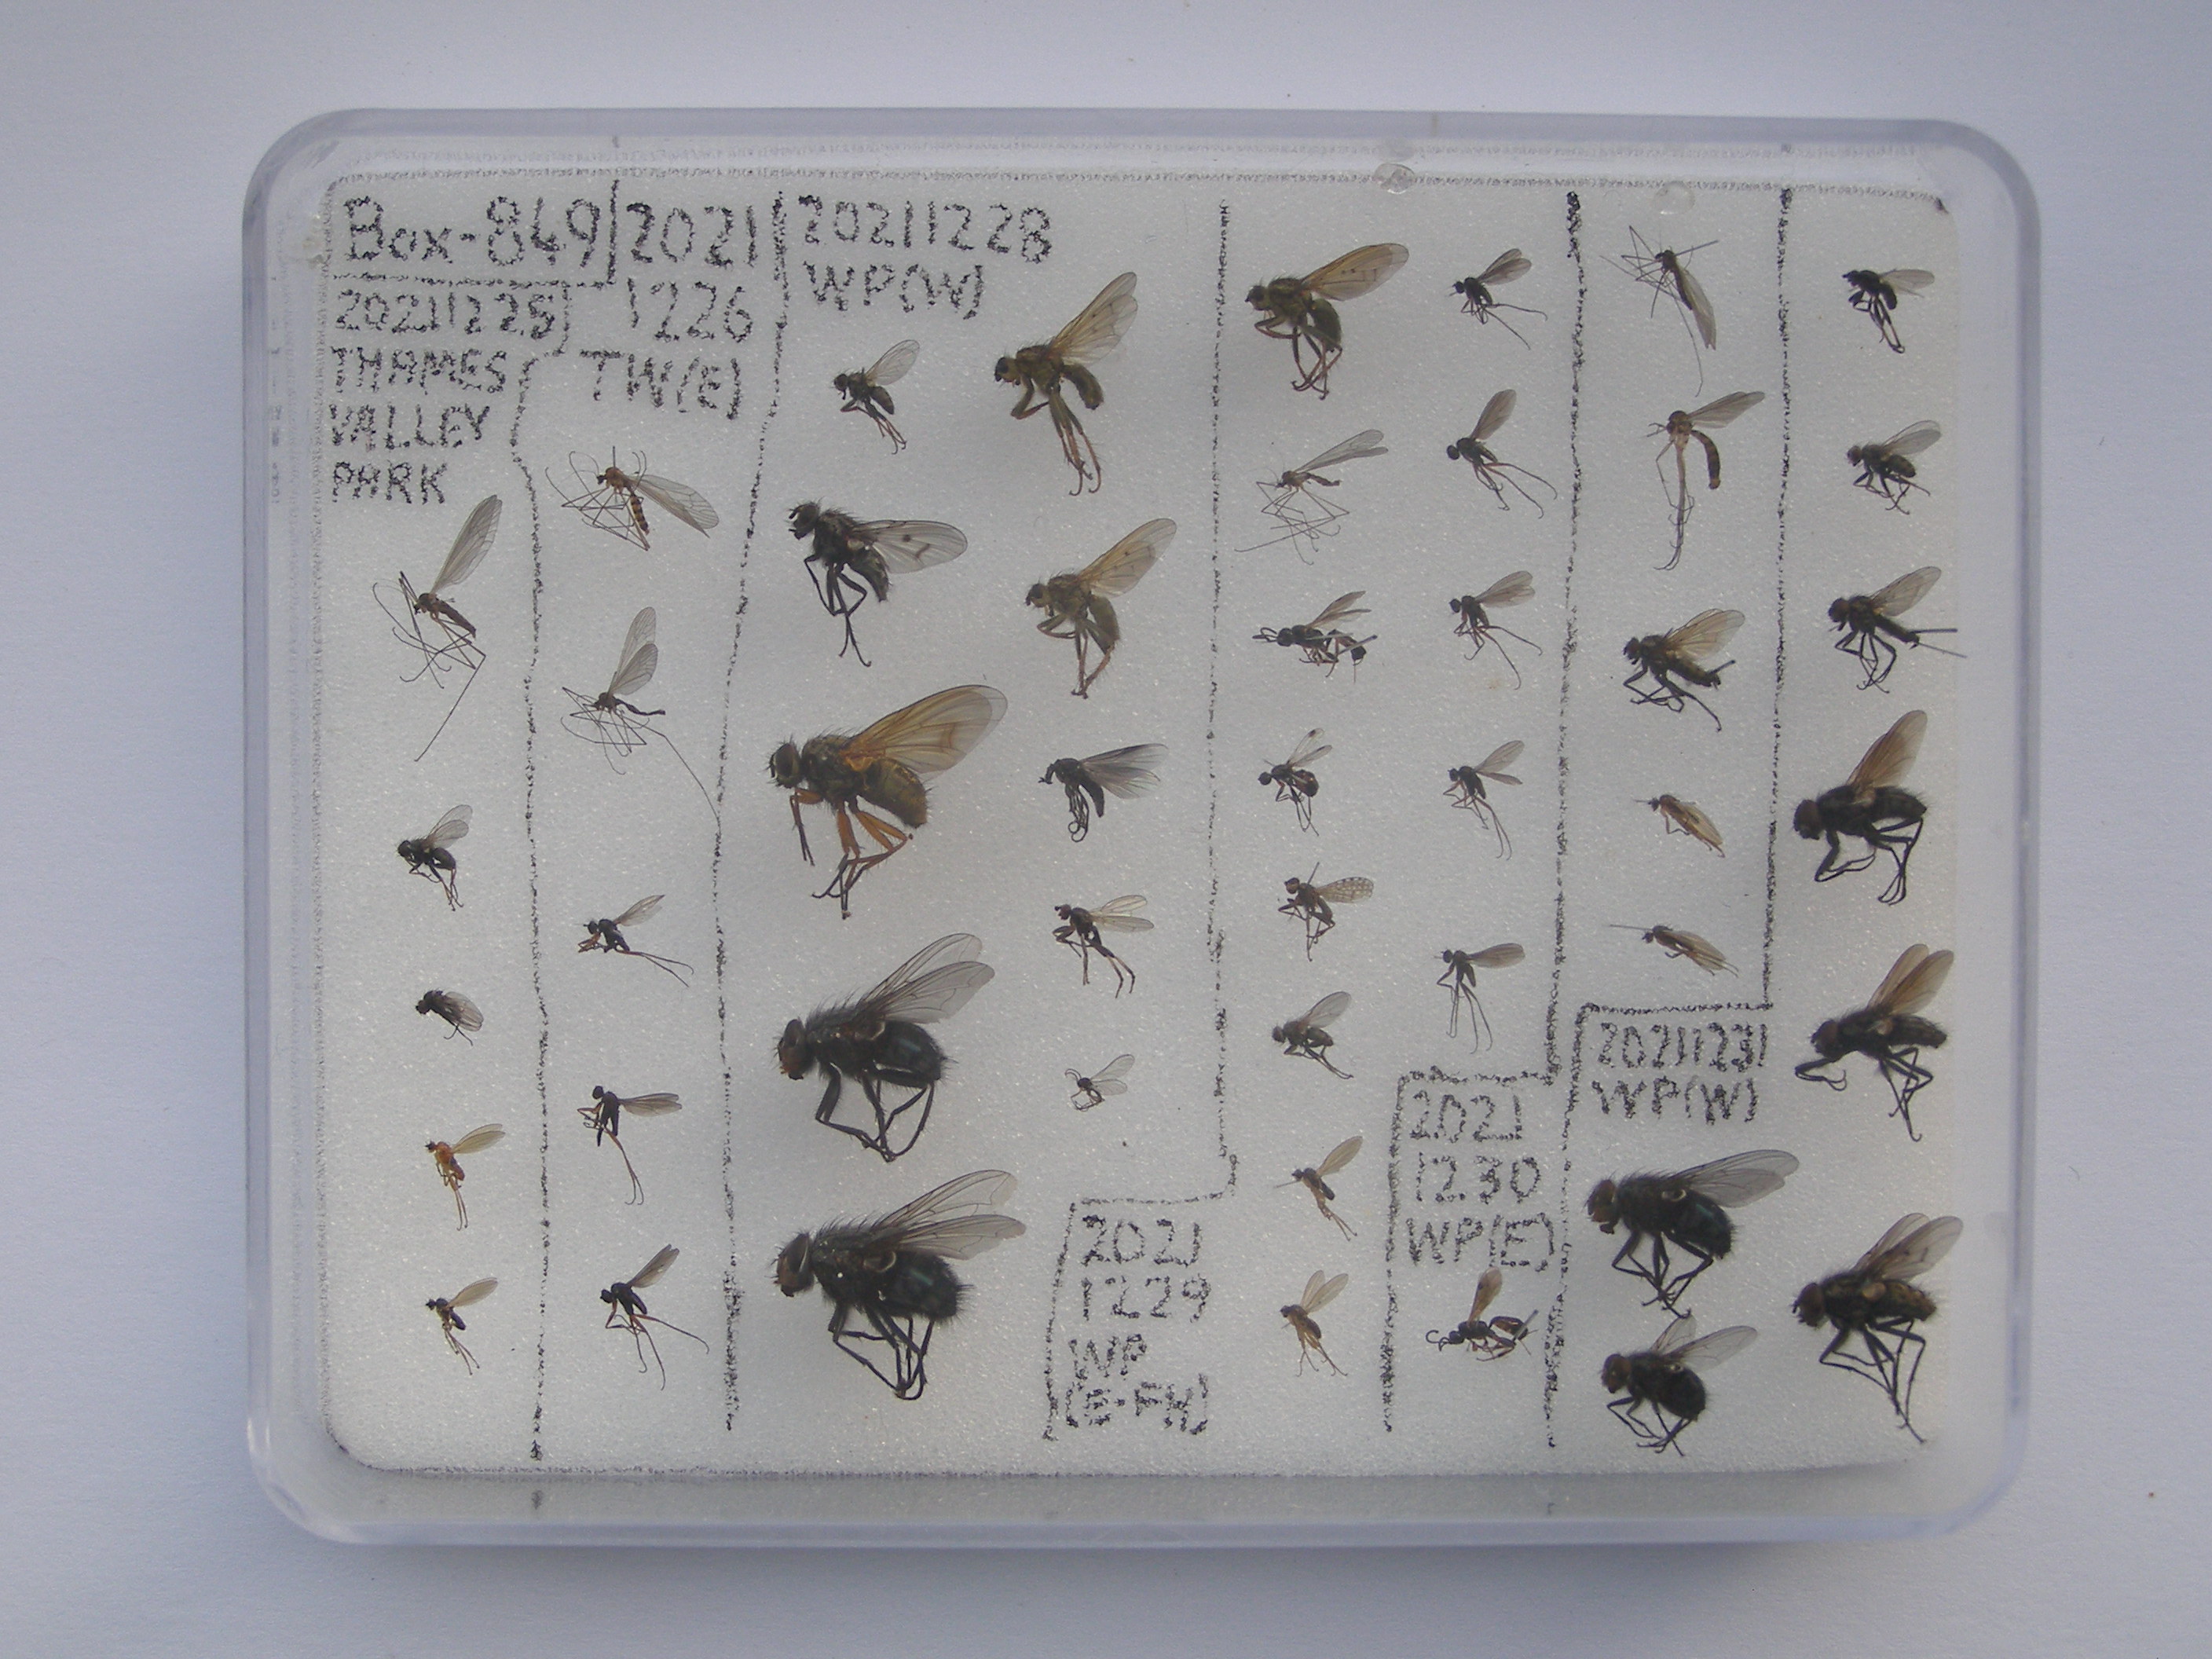 Box-849
20211225
THAMES
VALLEY
PARK
2021
1226
TW(E)
20211228
WP(W)
2021
1229
WP
(E·FN)
2021
1230
WP(E)
20211231
WP(W)